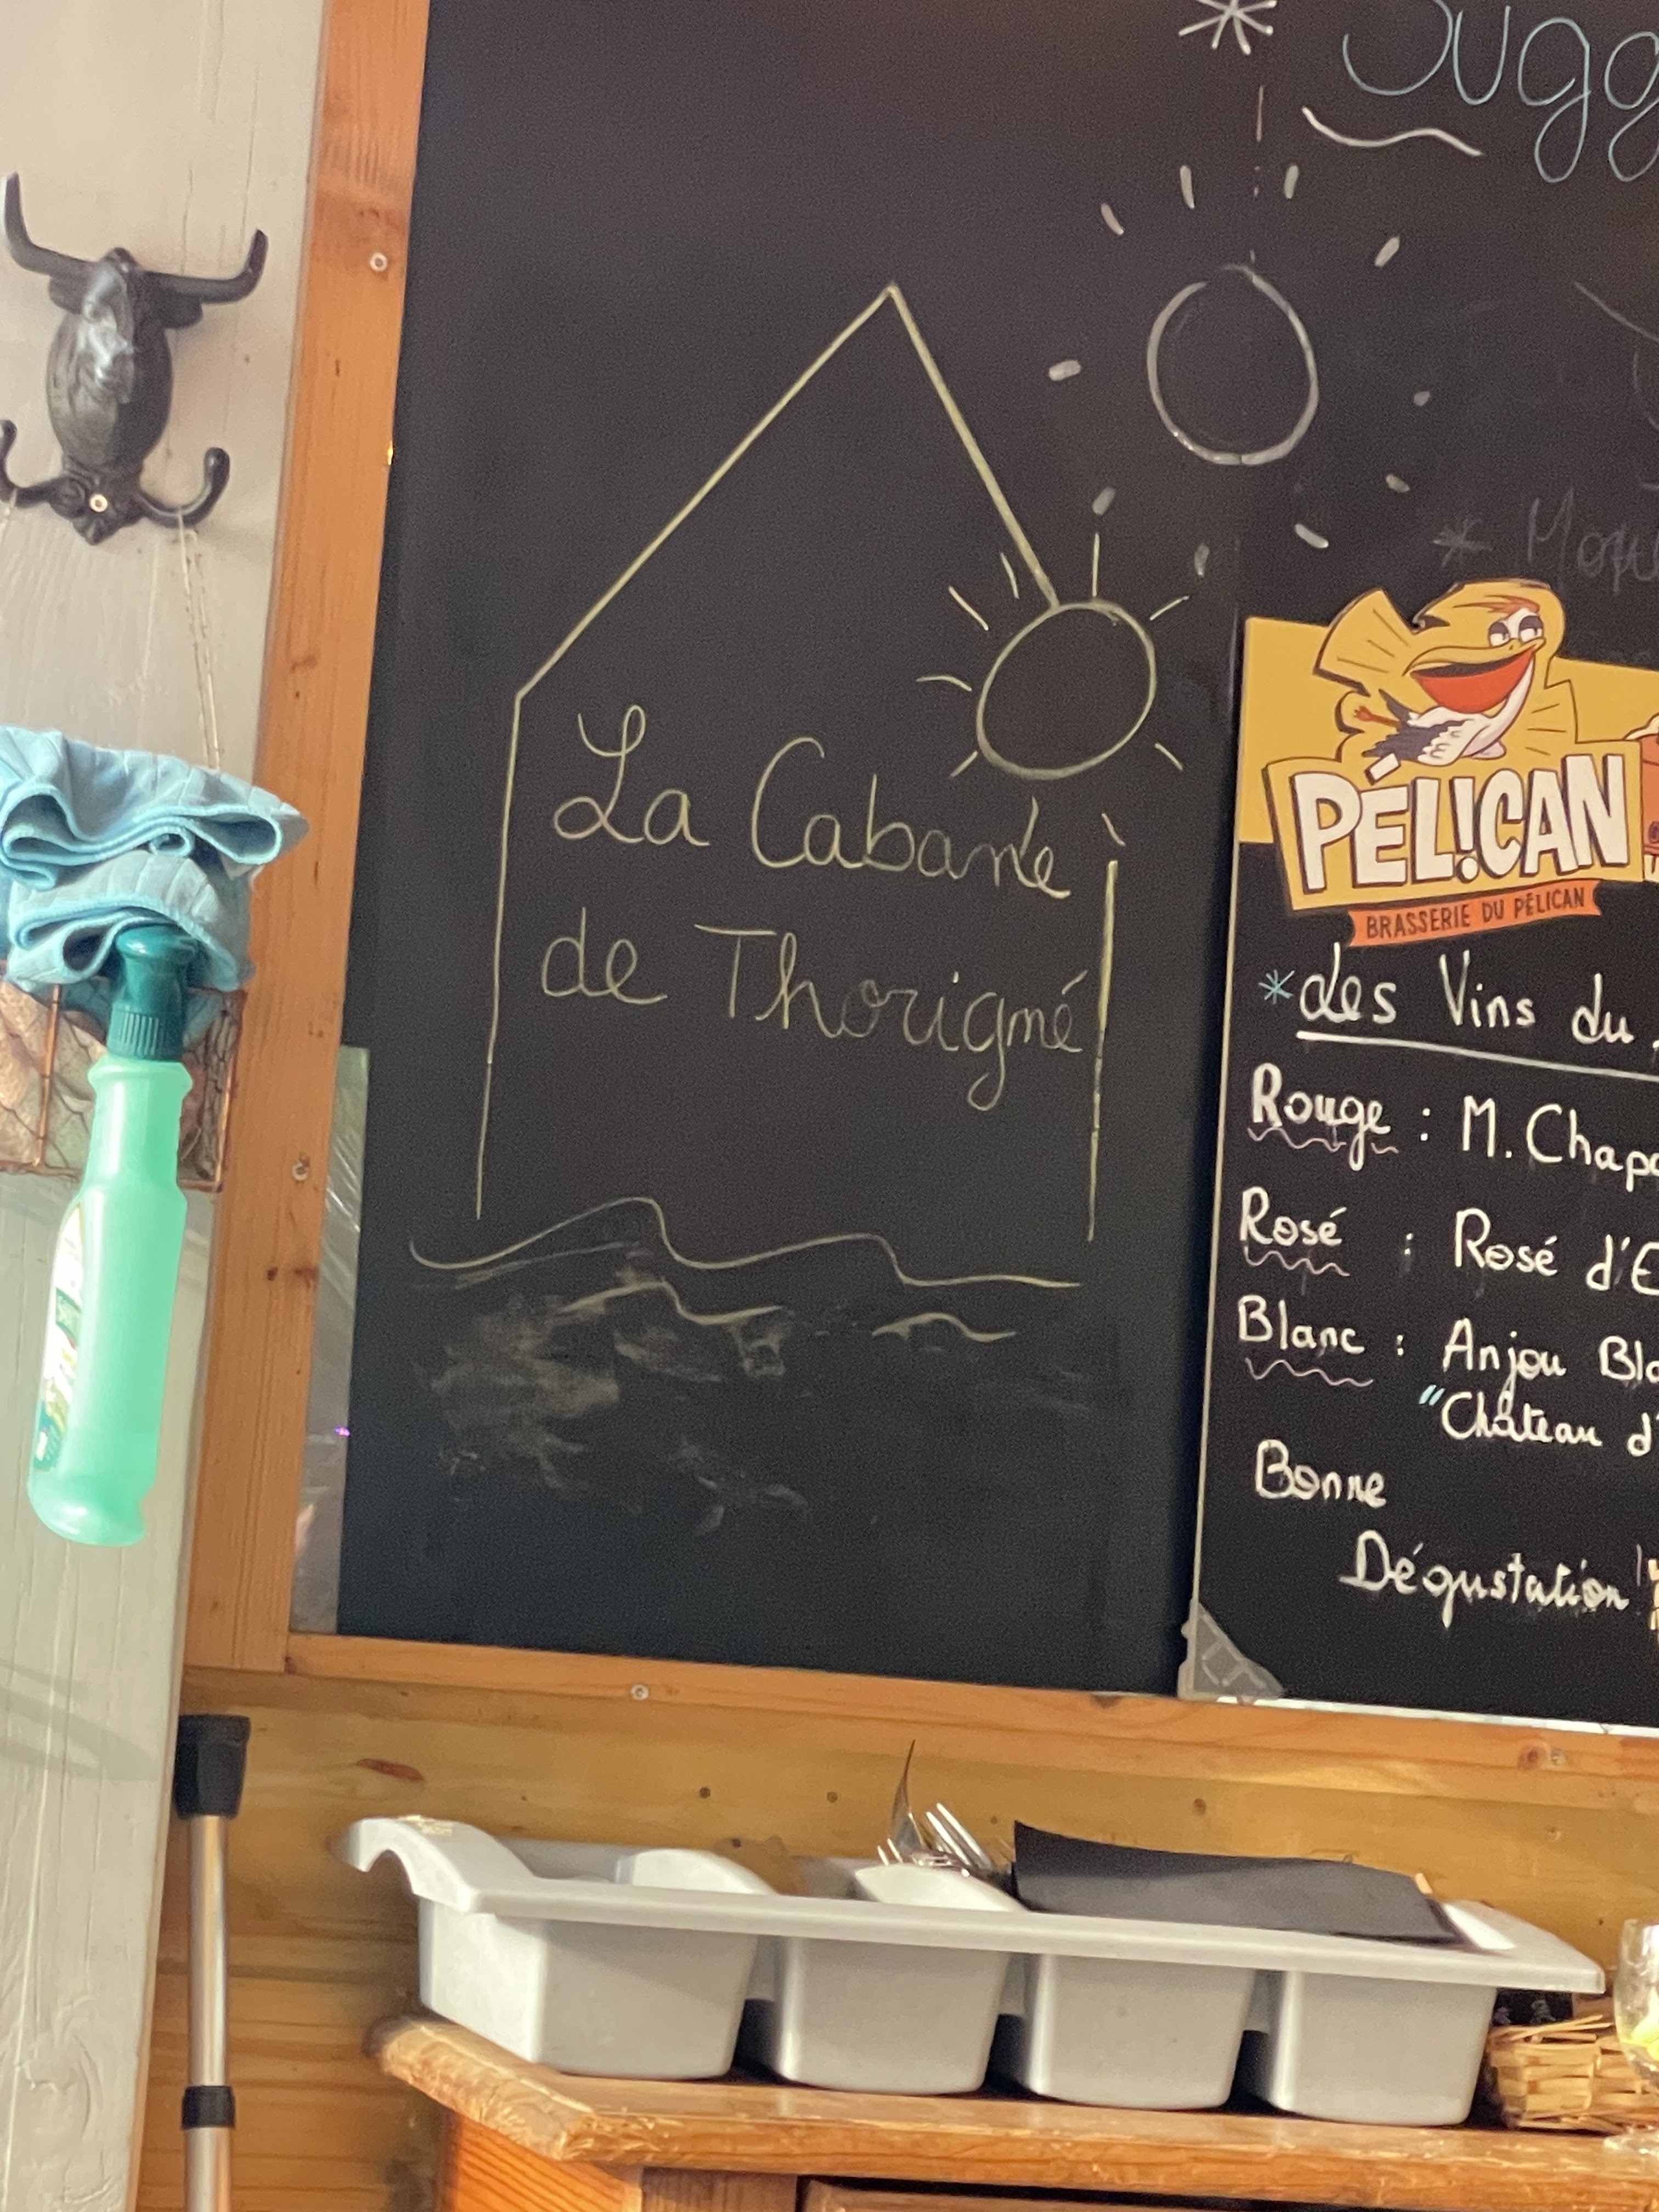 La Cabane
de Thorigné
PÉL!CAN
BRASSERIE DU PÉLICAN
*des Vins du
Rouge : M. Chap
Rosé : Rosé d'E
Blanc : Anjou Bl
"Château d'
Bonne
Dégustation !